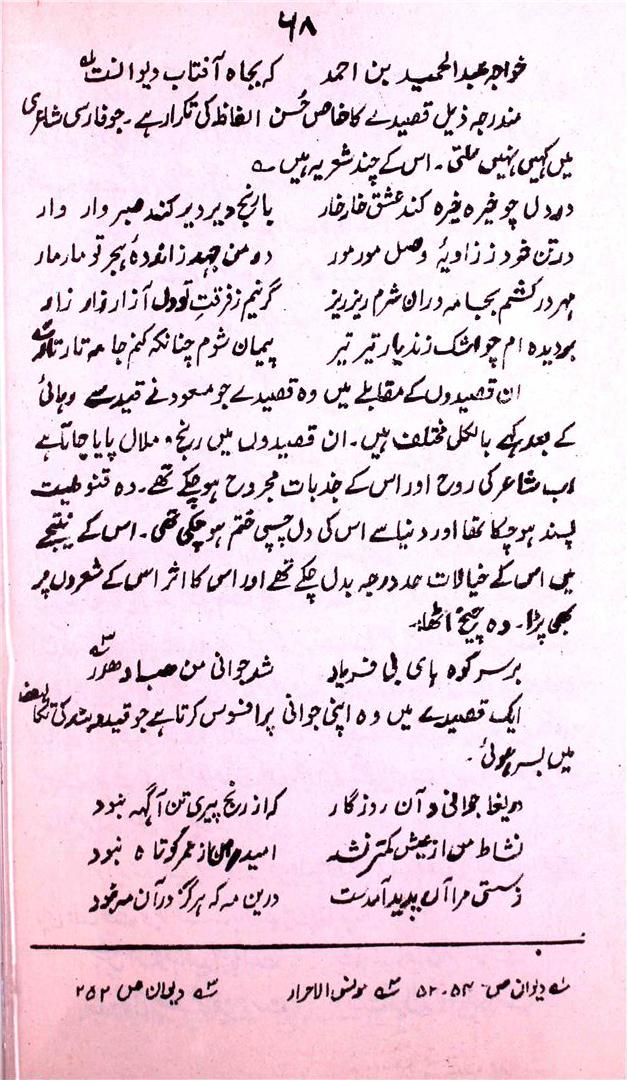 ۶۸
خواجہ عبدالحمید بن احمد کہ بجاہ آفتاب دیوانست
مندرجہ ذیل قصیدے کا خاص حُسن الفاظ کی تکرار ہے۔ جو فارسی شاعری
میں کہیں نہیں ملتی۔ اس کے چند شعر یہ ہیں ؎
دردل چو خیرہ خیرہ کند عشق خارخار با رنج دیر دیر کند صبر وار وار
درتن خود ز زاویۂ وصل مور مور در من جہد ز اندہ ہجر تو مارمار
مہر درکشم بجامہ دران شرم ریز ریز گر نیم ز فرقتِ تو دل آزار زار زار
بردیدہ ام چو اشک زند یار تیر تیر پیمان شوم چنانکہ کنم جامہ تار تار
ان قصیدوں کے مقابلے میں وہ قصیدے جو مسعود نے قید سے رہائی
کے بعد کہے بالکل مختلف ہیں۔ ان قصیدوں میں رنج و ملال پایا جاتا ہے
اب شاعر کی روح اور اس کے جذبات مجروح ہو چکے تھے۔ وہ قنوطیت
پسند ہو چکا تھا اور دنیا سے اس کی دل چسپی ختم ہو چکی تھی۔ اس کے نتیجے
میں اس کے خیالات حد درجہ بدل چکے تھے اور اس کا اثر اسی کے شعروں پر
بھی پڑا۔ وہ چیخ اٹھا:
برسر کوہ ہای بی فریاد شد جوانی من ہبا و ہدر
ایک قصیدے میں وہ اپنی جوانی پر افسوس کرتا ہے جو قید و بند کی تکالیف
میں بسر ہوئی۔
دریغا جوانی و آن روزگار کہ از رنج پیری تن آگہ نبود
نشاط من از عیش کمتر نشد امید من از عمر کوتاہ نبود
ز سستی مرا آں پدید آمدست درین مہ کہ ہرگز در آن مہ نبود
۱؎ دیوان ص۔ ۵۳-۵۲ ۲؎ مونس الاحرار ۳؎ دیوان ص ۲۵۲